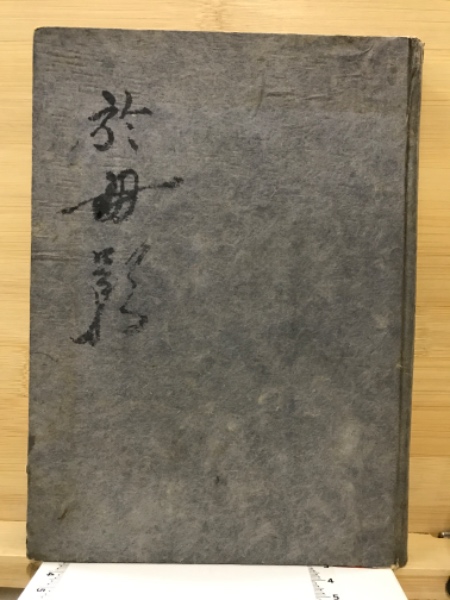 於母影